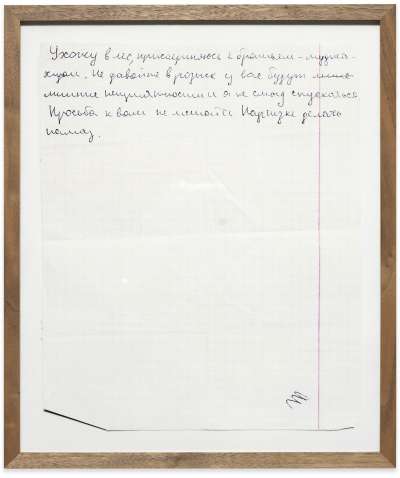 Ухожу в лес, присоединяюсь к братьям-муджа-
хидам. Не давайте в розыск у вас будут лишь
лишние неприятности и я не смогу спускаться
Просьба к вам не мешайте Наргизке делать
намаз.